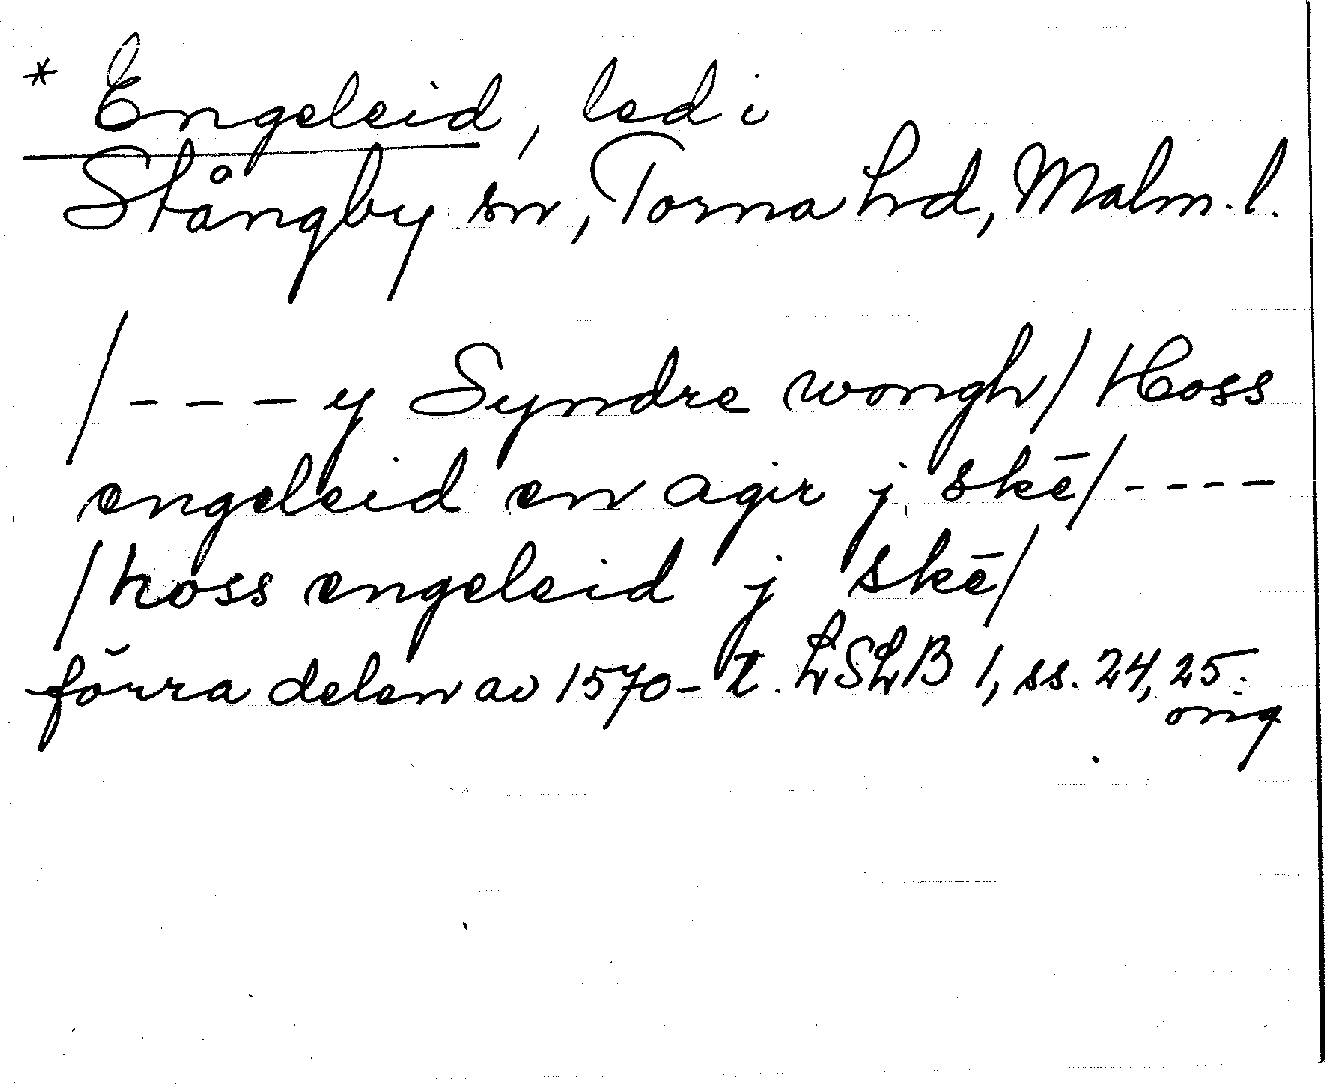 * Engeleid, led i
Stångby sn, Torna hd, Malm. l.
/- - - y Syndre wongh/ Hoss
engeleid en agir j skē/- - - -
/hoss engeleid j skē/
förra delen av 1570-t. LSLB 1, ss. 24, 25.
orig